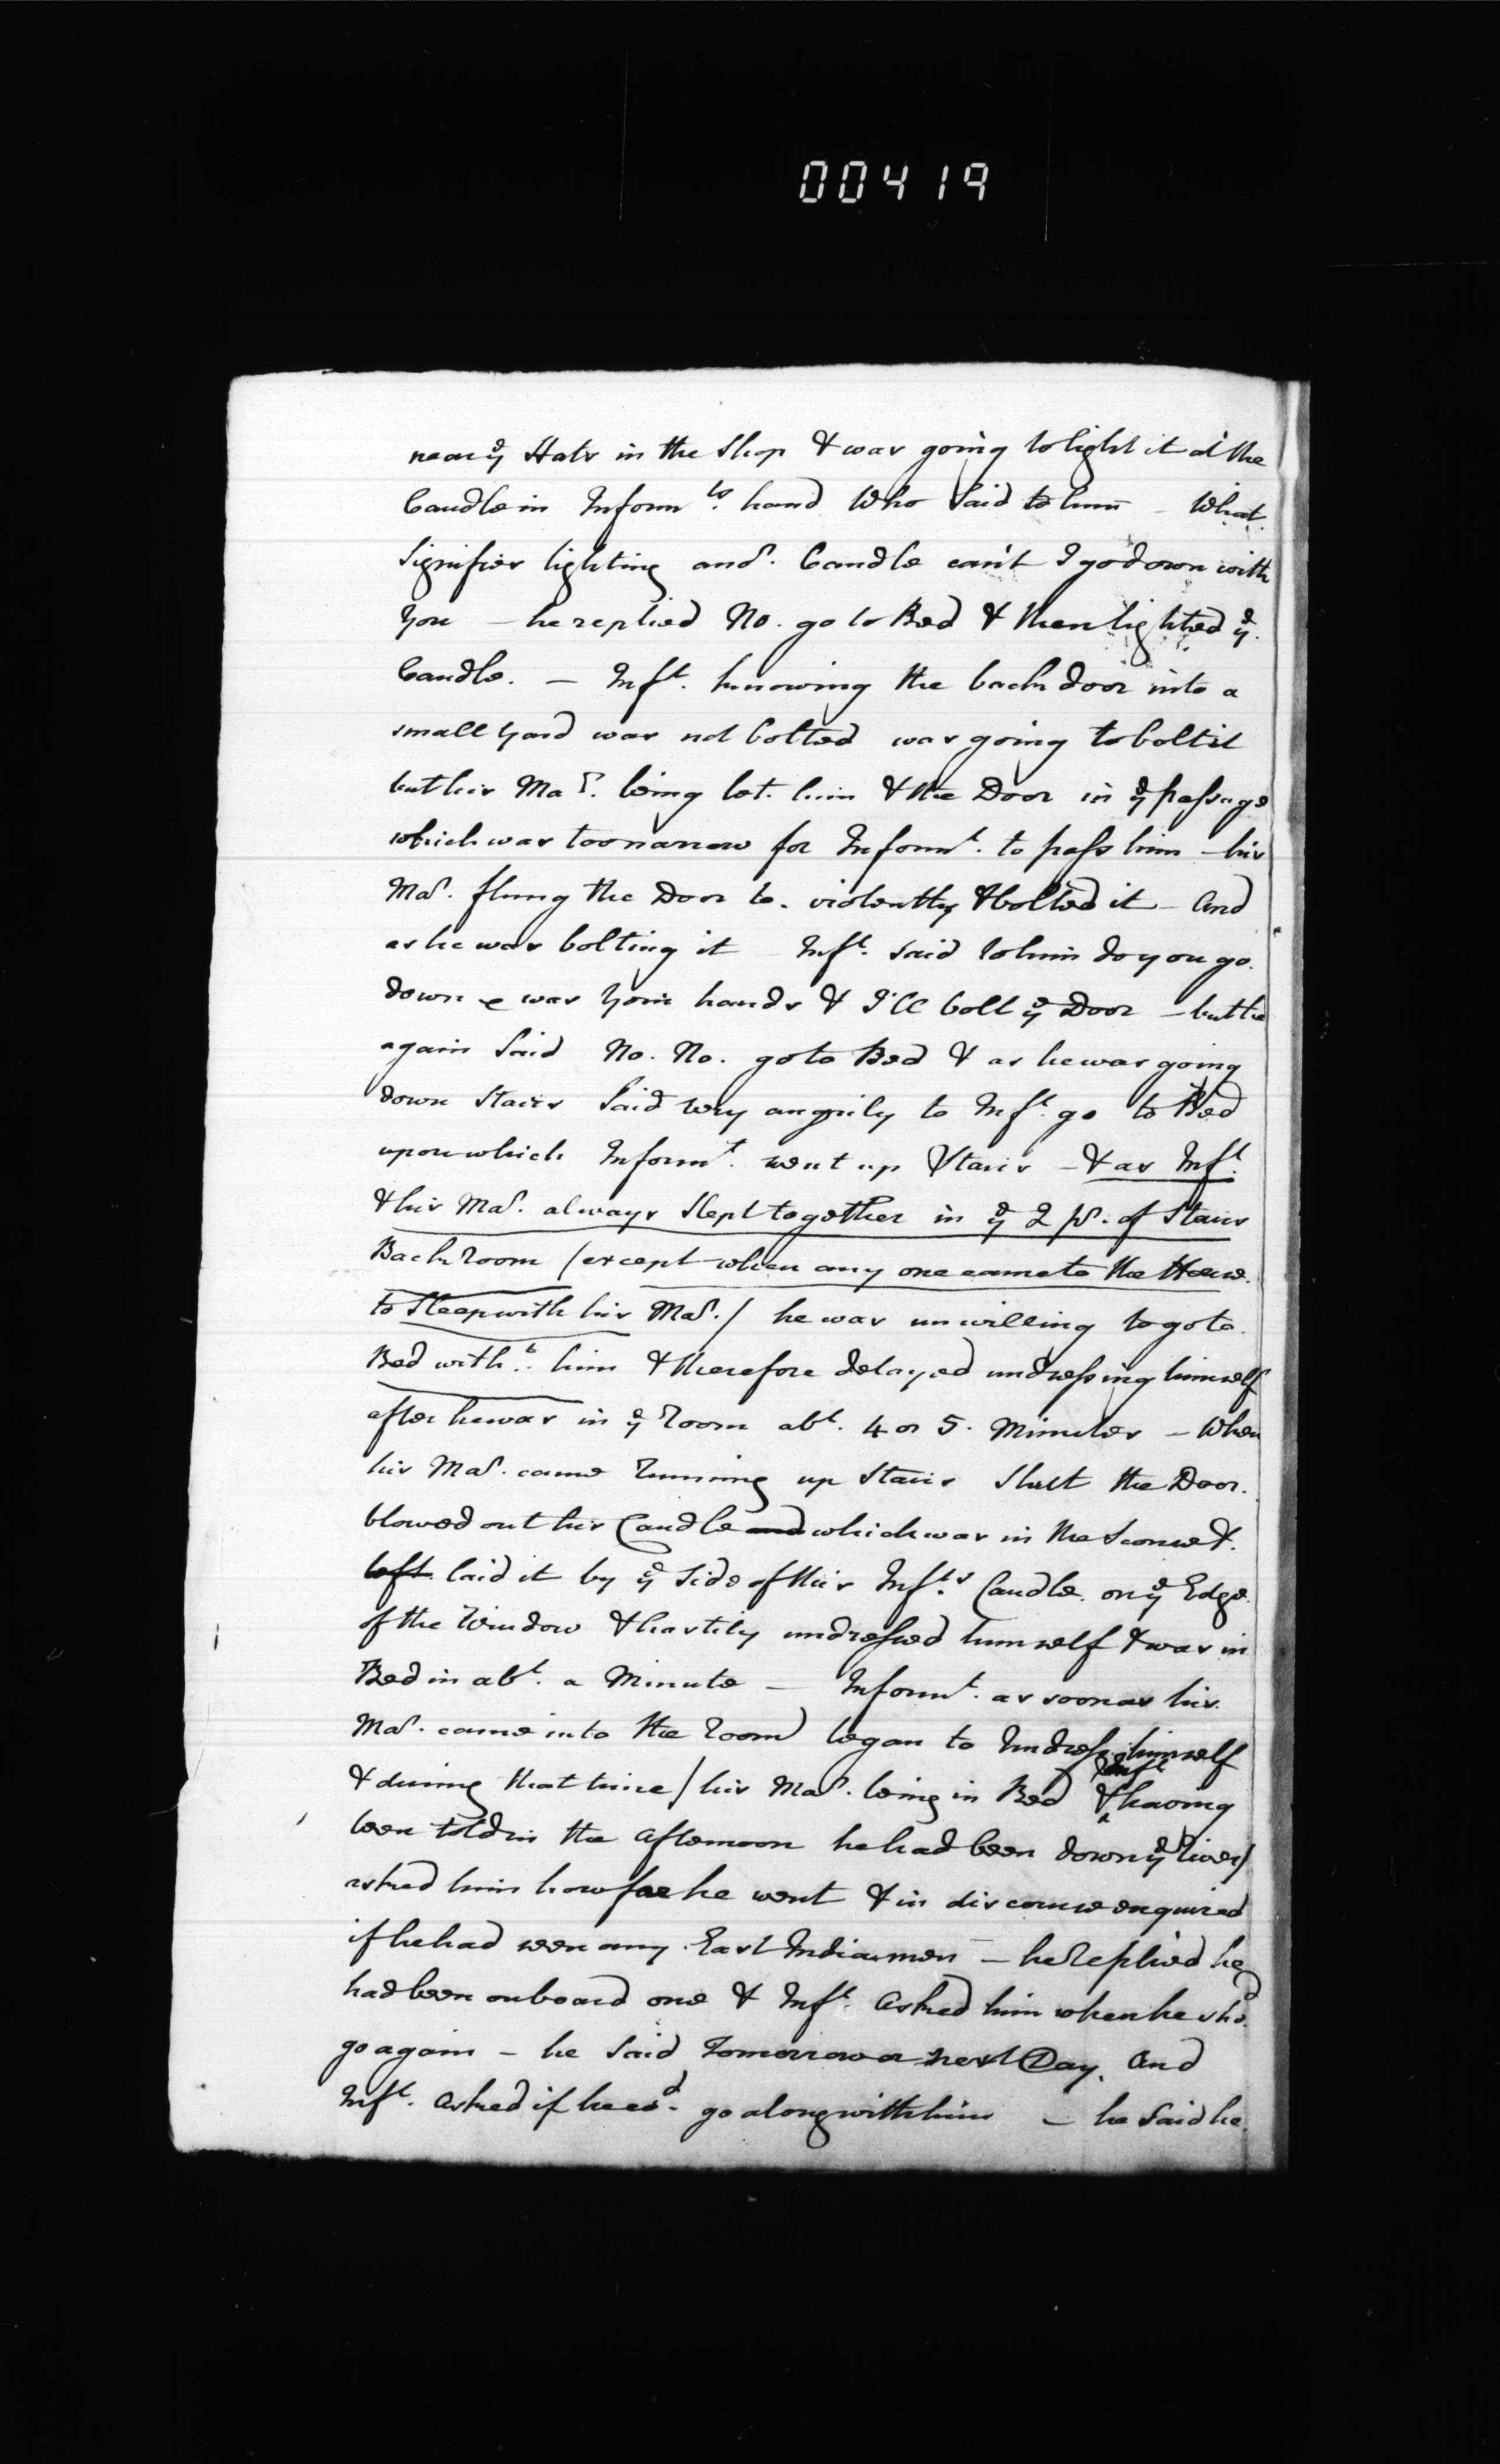 00419
near ye Hats in the Shop & was going to light it at the
Candle in Informts. hand Who Said to him - What
Signifies lighting anor. Candle can't I go down with
You - he replied No. go to Bed & then lighted ye
Candle. - Inft. knowing the back door into a
small Yard was not bolted was going to bolt it
but his Mar. being bet. him & the Door in ye passage
which was too narrow for Informt. to pass him - his
Mar. flung the Door to. violently & bolted it - And
as he was bolting it Inft. said to him do you go.
down & was Your hands & I'll bolt ye Door - but he
again Said No. No. go to Bed & as he was going
down Stairs Said very angrily to Inft. go to Bed
upon which Informt. went up Stairs - & as Inft.
& his Mar. always Slept together in ye 2 pr. of Stairs
Back Room (except when any one came to the House.
to Sleep with his Mar.) he was unwilling to go to
Bed witht. him & therefore delayed undressing himself
after he was in ye Room abt. 4 or 5. Minutes - When
his Mar. came Running up Stairs Shut the Door.
blowed out his Candle and which was in the Sconce &
left laid it by ye Side of this Infts. Candle. on ye Edge
of the Window & hastily undressed himself & was in
Bed in abt. a Minute - Informt. as soon as his
Mar. came into the Room began to Undress himself
& during that time (his Mar. being in Bed & Inft having
been told in the Afternoon he had been down ye River)
asked him how far he went & in discourse enquired
if he had seen any East Indiamen - he Replied he
had been onboard one & Inft. Asked him when he shod.
go again - he Said Tomorrow or next Day. And
Inft. Asked if he cod. go along with him - he Said he